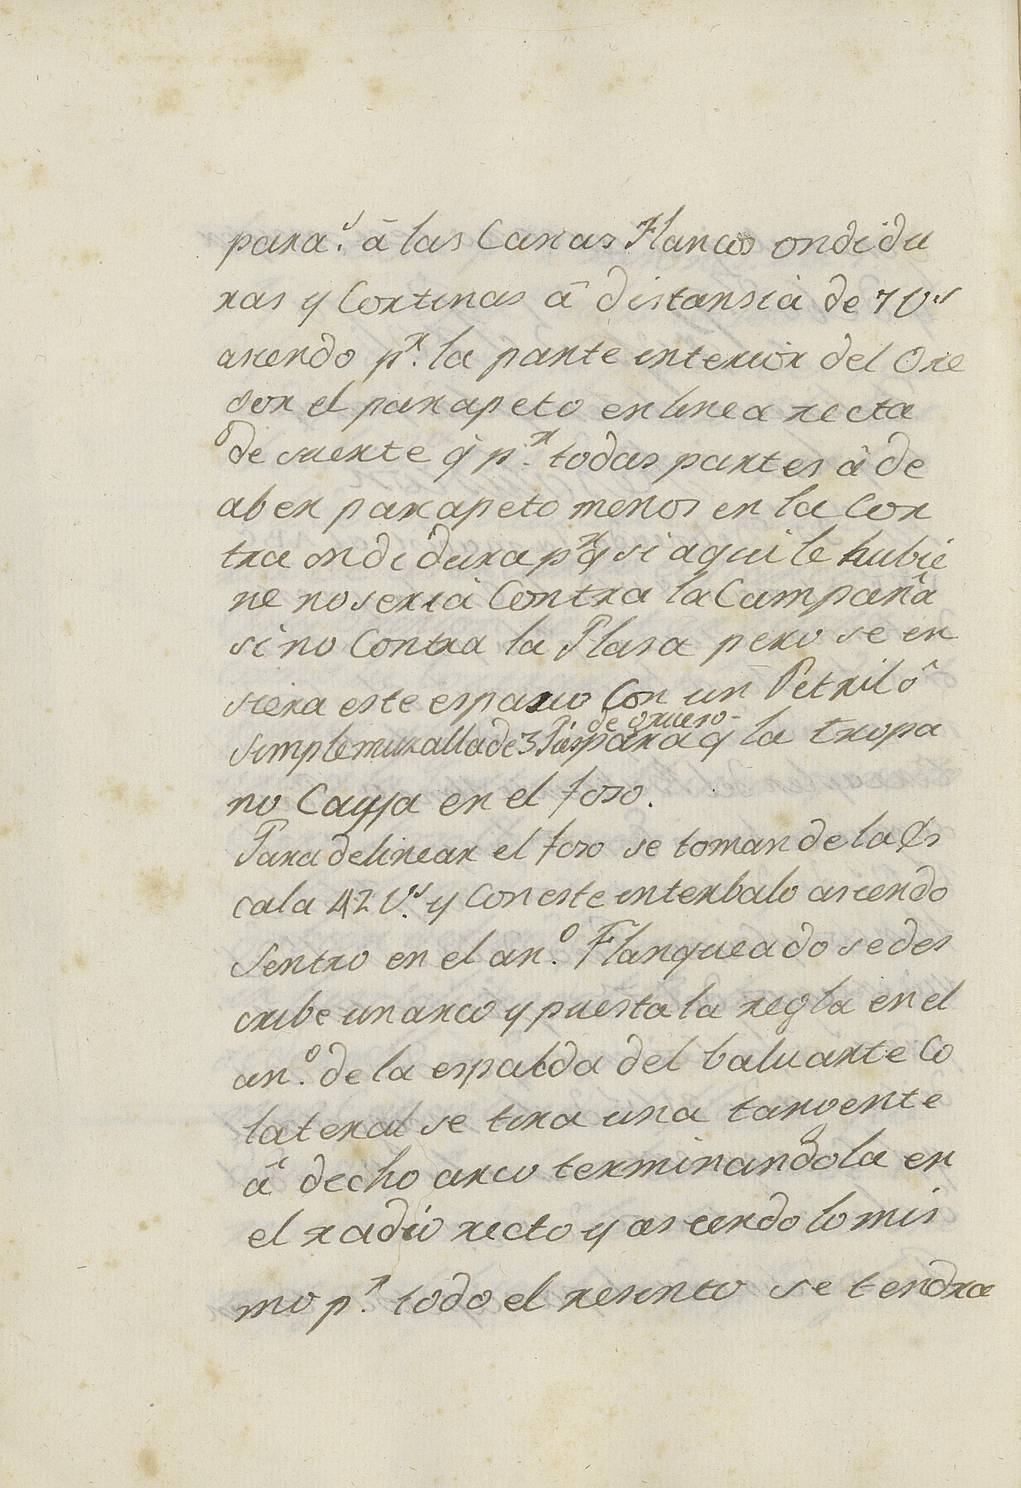 para.s â las Caras Flancos ondidu
ras y Cortinas â distansia de 7 V.s
asiendo p.r la parte interior del Ore
jon el parapeto en linea recta
de suerte q̃ p.r todas partes â de
aber parapeto menos en la Con
tra ondidura p.r q si aqui le hubie
re no seria Contra la Campaña
sino Contra la Plasa pero se en
siera este espasio Con un Petril ô
simple muralla de 3 Pies de grueso para q la tropa
no Cayga en el foso.
Para delinear el foso se toman de la Es
cala 42 V.s y Con este interbalo asiendo
Sentro en el an.o Flanqueado se des
cribe un arco y puesta la regla en el
an.o de la espalda del baluarte Co
lateral se tira una tangente
â decho arco terminandola en
el radio recto y asiendo lo mis
mo p.r todo el resinto se tendra